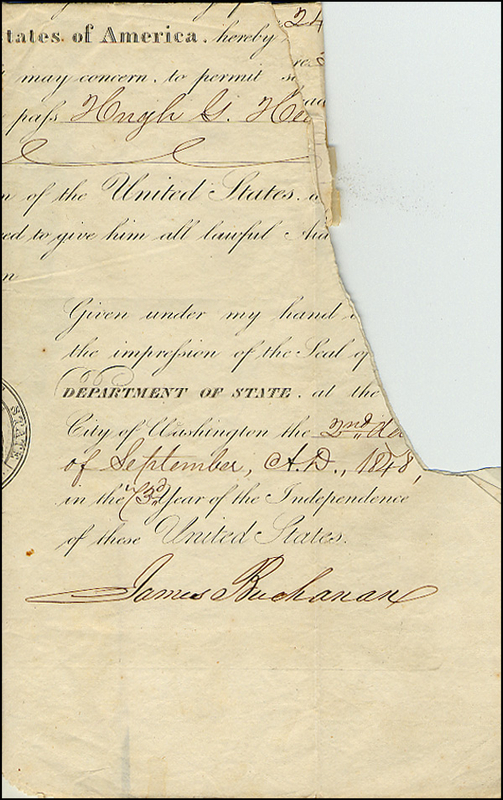 24
tates of America, hereby
may concern, to permit
pass Hugh G. He
n of the United States,
ed to give him all lawful Aid
n
Given under my hand
the impression of the Seal of
DEPARTMENT OF STATE, at the
City of Washington the 2nd da
of September, A.D., 1848,
in the 73d Year of the Independence
of these United States.
James Buchanan
STATE